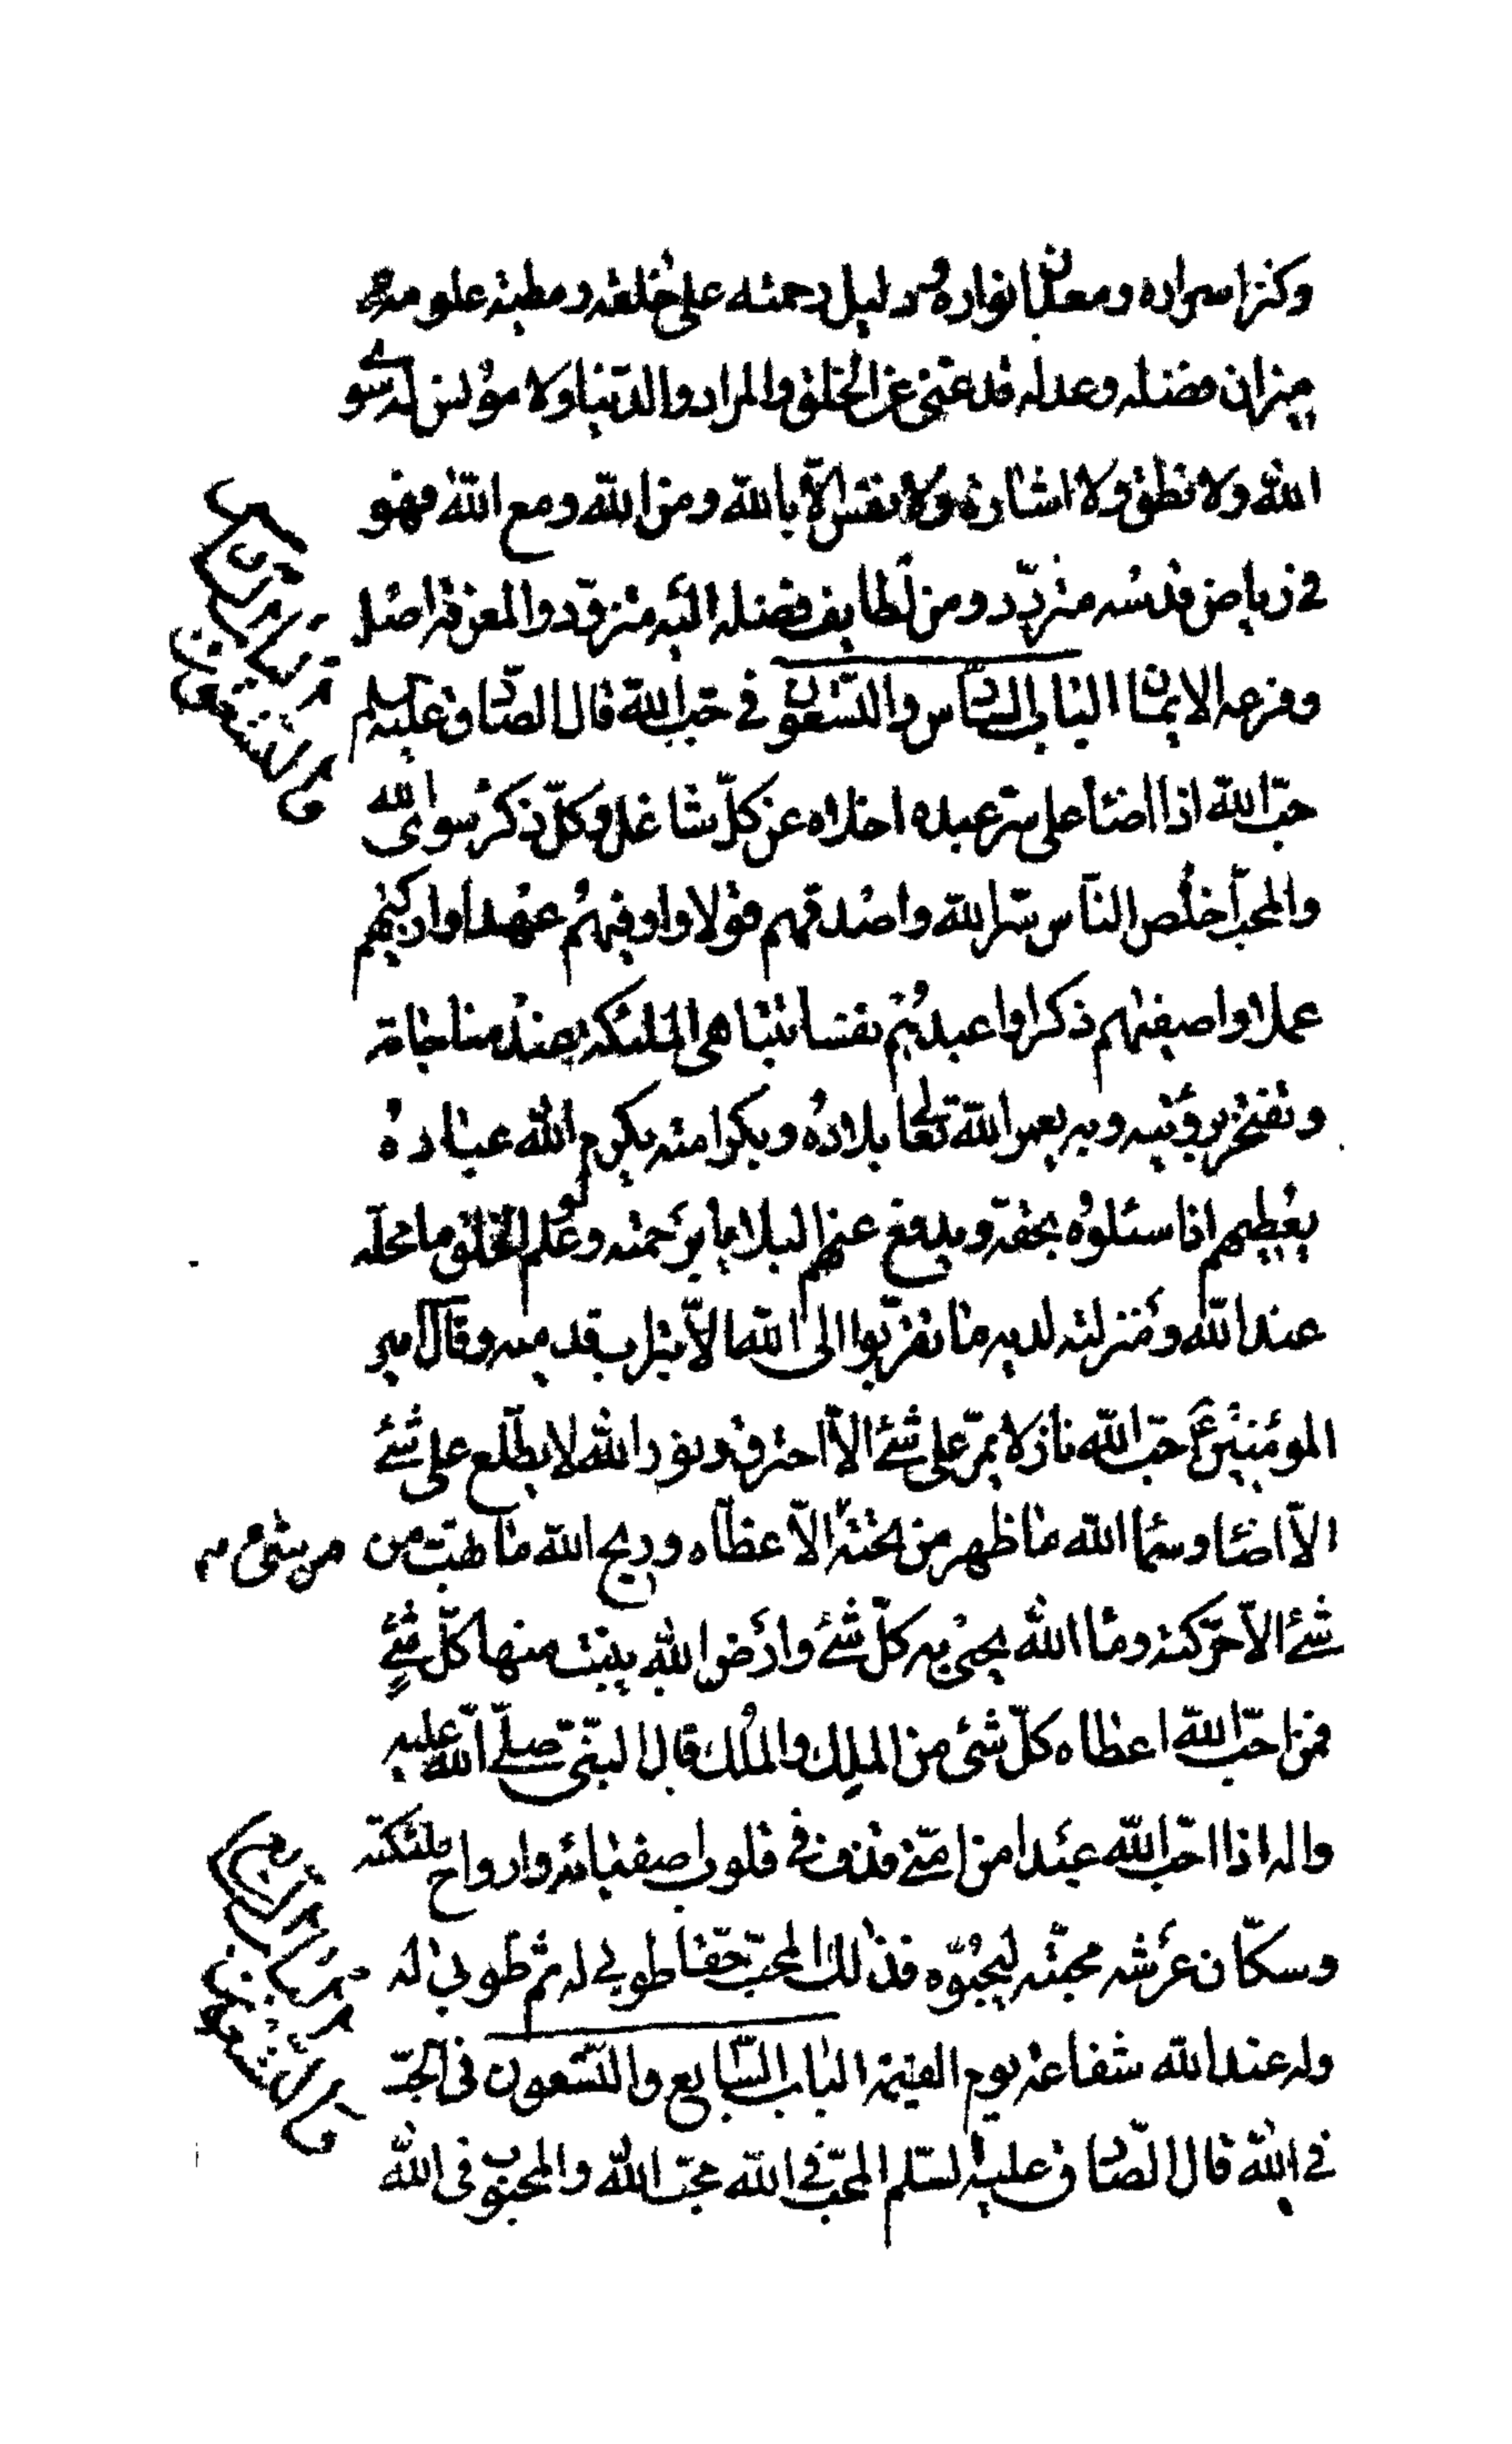 وكنز اسراره ومعدن انواره ودليل رحمته على خلقه ومطية علومه و
ميزان فضله وعدله قد غنى عن الخلق والمراد والدنيا ولا مؤنس له سوى
الله ولا نطق ولا اشارة ولا نفس الّا بالله ومن الله ومع الله فهو
في رياض قدسه متردّد ومن لطايف فضله اليه متزوّد والمعرفة اصل
وفرعه الايمان الباب السّادس والتّسعون في حبّ الله قال الصّادق عليه السلم
حبّ الله اذا اضاء على سرّ عبده اخلاه عن كلّ شاغل وكلّ ذكر سوى الله
والمحبّ اخلص النّاس سرّا لله واصدقهم قولا واوفيهم عهدا وازكيهم
عملا واصفيهم ذكرا واعبدهم نفسا تتباهى الملئكة عند مناجاته
وتفتخر برؤيته وبه يعمر الله تعالى بلاده وبكرامته يكرم الله عباده
يعطيهم اذا سئلوه بحقّه ويدفع عنهم البلايا برحمته ولو علم الخلق ما محلّه
عند الله ومنزلته لديه ما تقرّبوا الى الله الّا بتراب قدميه وقال امير
المؤمنين ع حبّ الله نار لا يمرّ على شئ الّا احترق ونور الله لا يطّلع على شئ
الّا اضاء وسماء الله ما ظهر من تحته الّا غطاه وريح الله ما تهبّ من
شئ الّا حرّكته وماء الله يحيى به كلّ شئ وارض الله ينبت منها كلّ شئ
فمن احبّ الله اعطاه كلّ شئ من الملك والملك قال النبيّ صلّى الله عليه
واله اذا احبّ الله عبدا من امّتي قذف في قلوب اصفيائه وارواح ملئكته
وسكّان عرشه محبّته ليحبّوه فذلك المحبّ حقّا طوبى له ثم طوبى له
وله عند الله شفاعة يوم القيمة الباب السّابع والتّسعون في الحبّ
في الله قال الصّادق عليه السّلم المحبّ في الله محبّ الله والمحبوب في الله